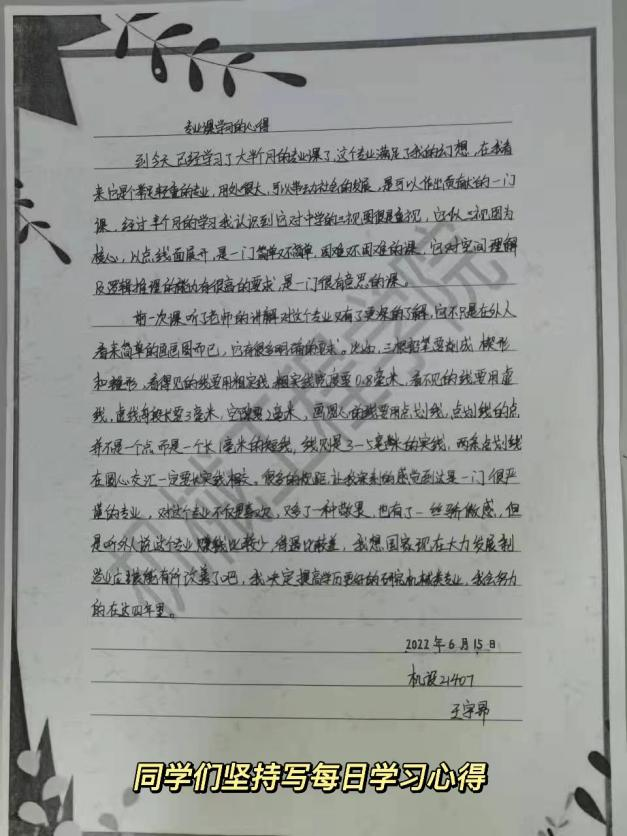 专业课学习的心得
到今天已经学习了大半个月的专业课了,这个专业满足了我的幻想,在我看
来它是个举足轻重的专业,用处很大,可以带动社会的发展,是可以作出贡献的一门
课,经过半个月的学习我认识到它对中学的三视图很是重视,它以三视图为
核心,以点线面展开,是一门简单又不简单,困难又不困难的课,它对空间理解
及逻辑推理的能力有很高的要求,是一门很有意思的课。
第一次课听了老师的讲解对这个专业又有了更深的了解,它不只是在外人
看来简单的画画图而已,它有很多明确的要求。比如,三根铅笔要削成 楔形
和锥形,看得见的线要用粗实线,粗实线宽度要0.8毫米,看不见的线要用虚
线,虚线每段大要3毫米,空隙要1毫米,画圆心的线要用点划线,点划线的点
并不是一个点,而是一个长1毫米的短线,线则是3-5毫米的实线,两条点划线
在圆心交汇一定要以实线相交。很多的规矩,让我深刻的感觉到这是一门很严
谨的专业,对这个专业不仅是喜欢,又多了一种敬畏,也有了一丝骄傲感,但
是听外人说这个专业赚钱比较少,待遇比较差,我想国家现在大力发展制
造业应该能有所改善了吧,我决定提高学历更好的研究机械类专业,我会努力
的在这四年里。
2022年6月15日
机设21407
王宇昂
机械工程学院
同学们坚持写每日学习心得